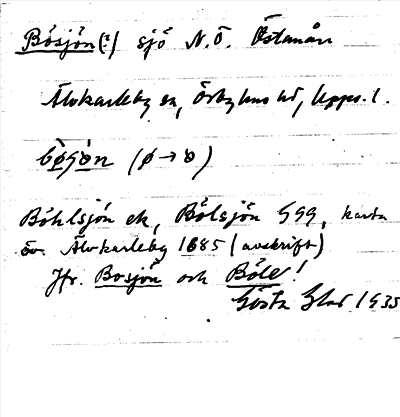 Bösjön(?) sjö N.Ö. Östanån
Älvkarleby sn, Örbyhus hd, Upps. l.
bø̀ʃøn (ø→ɵ)
Böhlsjön ek, Bölsjön GGG, karta
öv. Älvkarleby 1685 (avskrift)
Jfr. Bosjön och Böle!
Gösta 1935